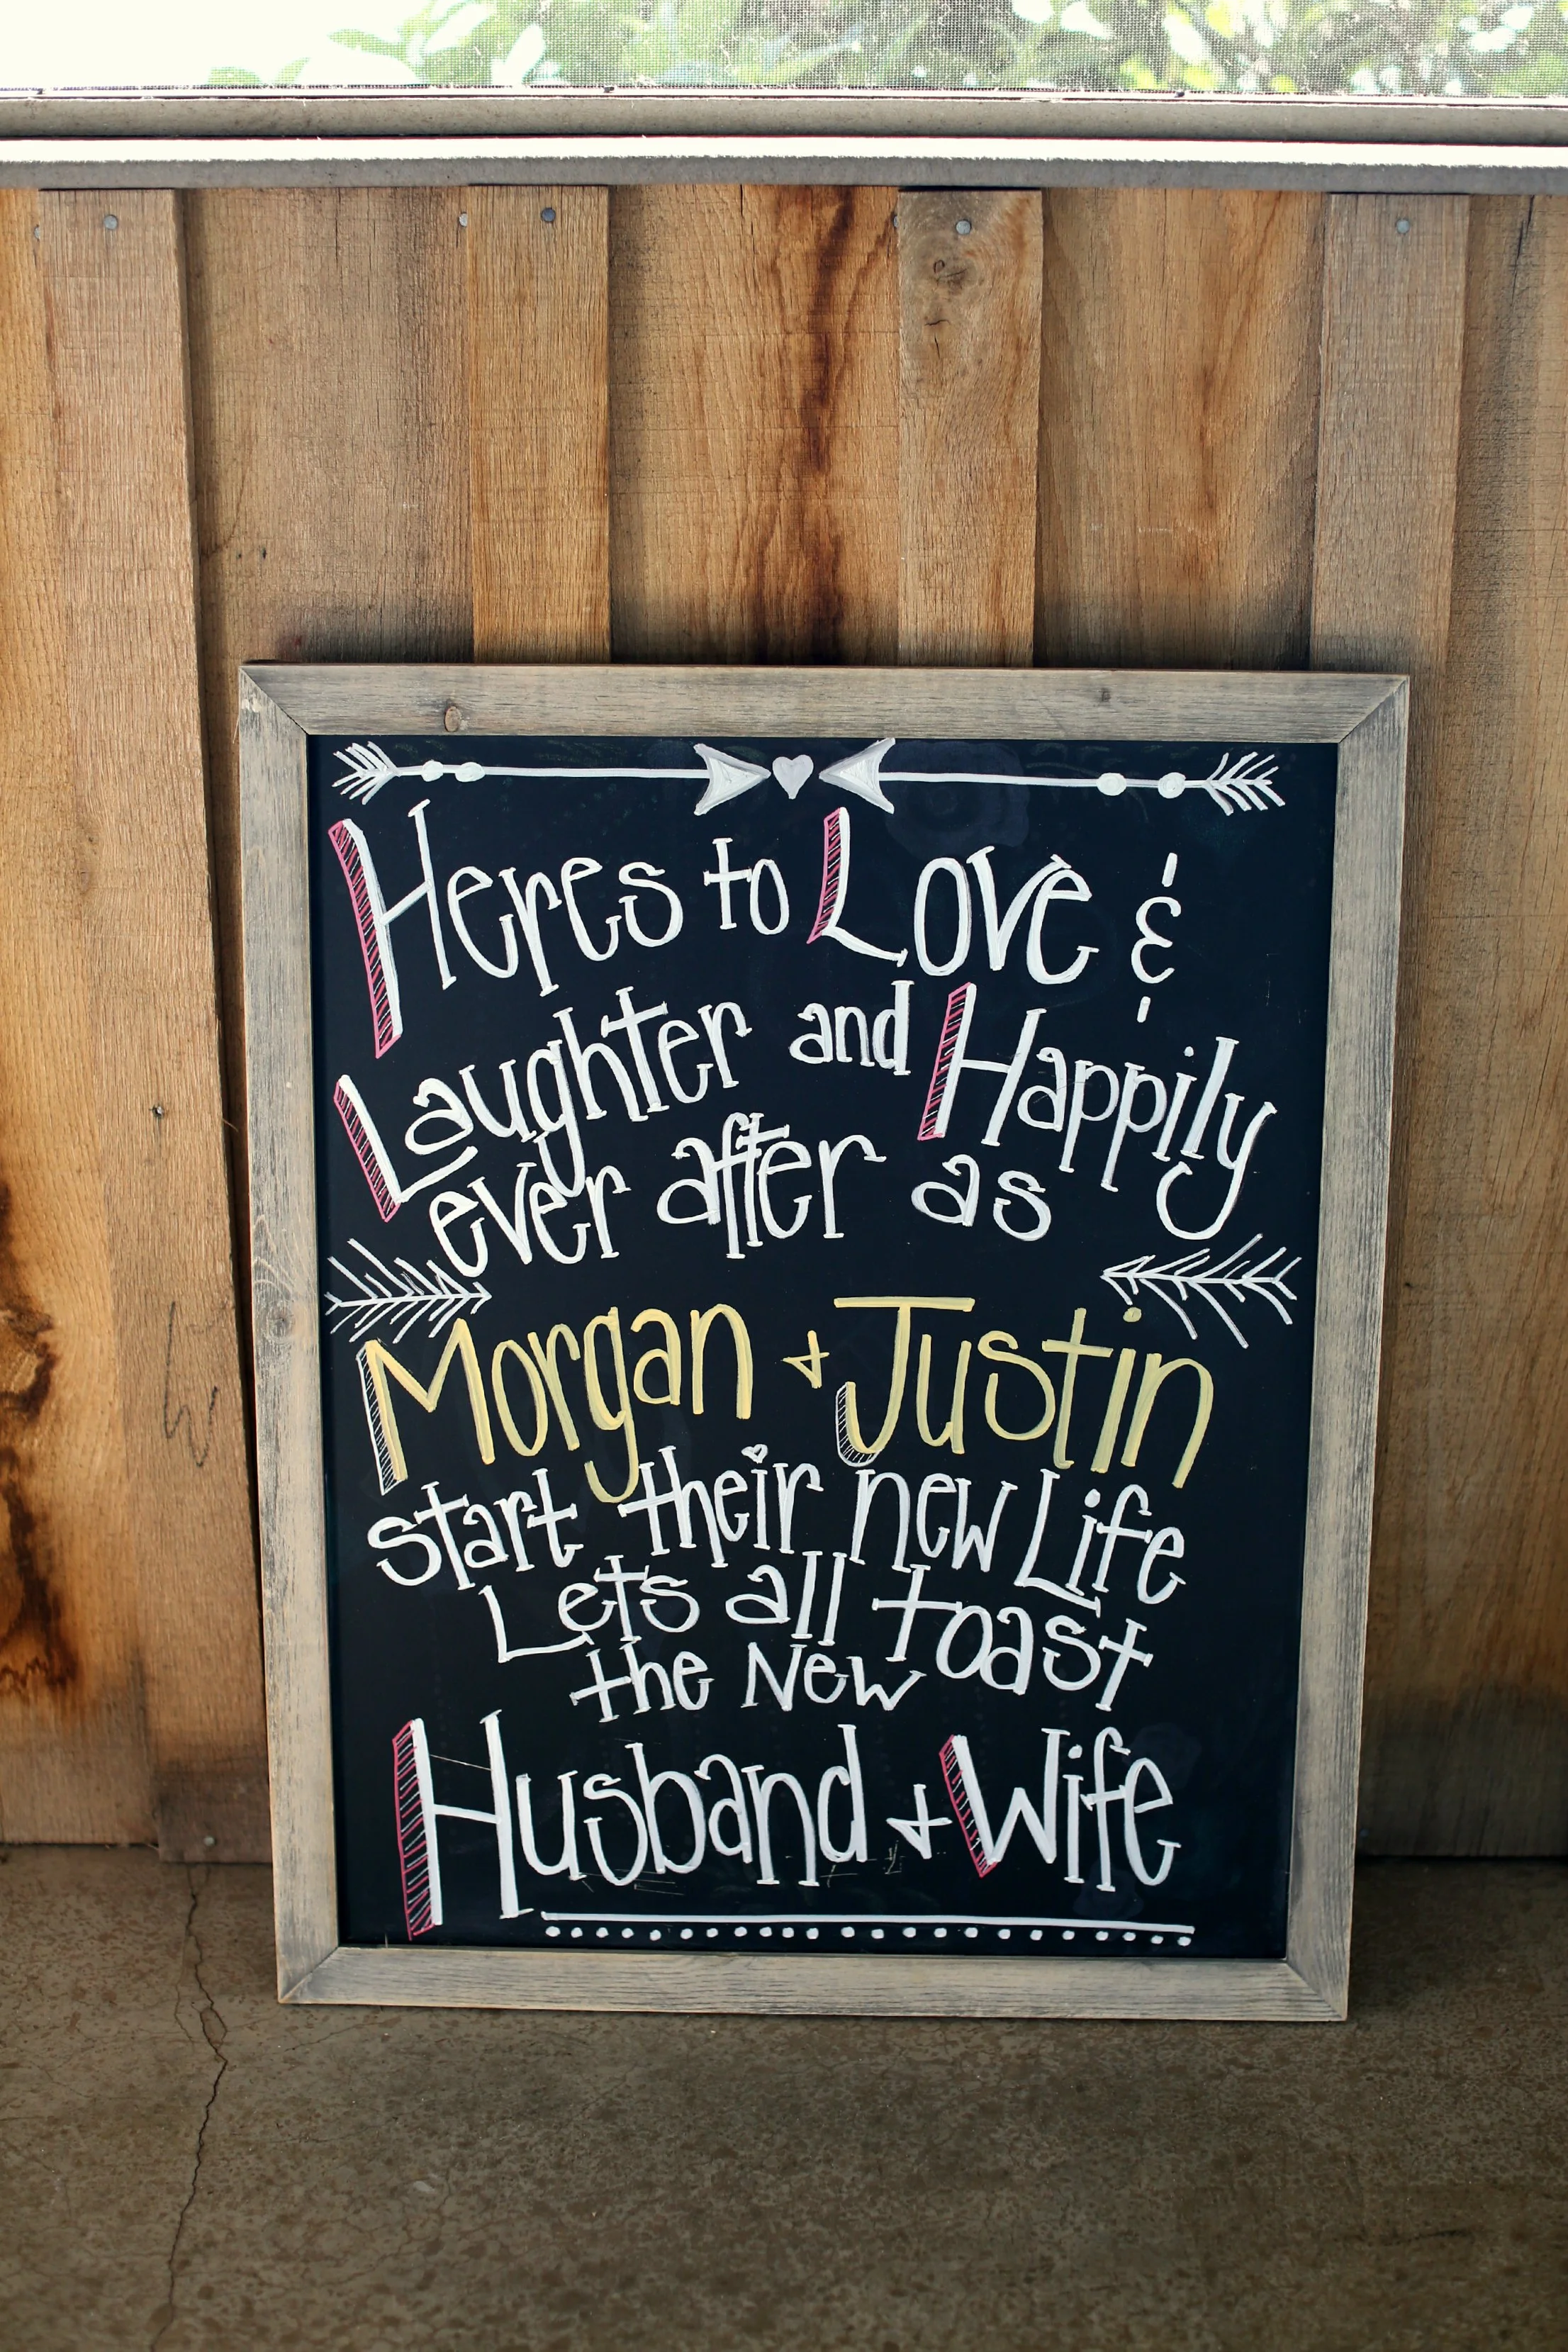 Heres to Love &
Laughter and Happily
ever after as
Morgan + Justin
start their new Life
Lets all toast
the New
Husband + Wife